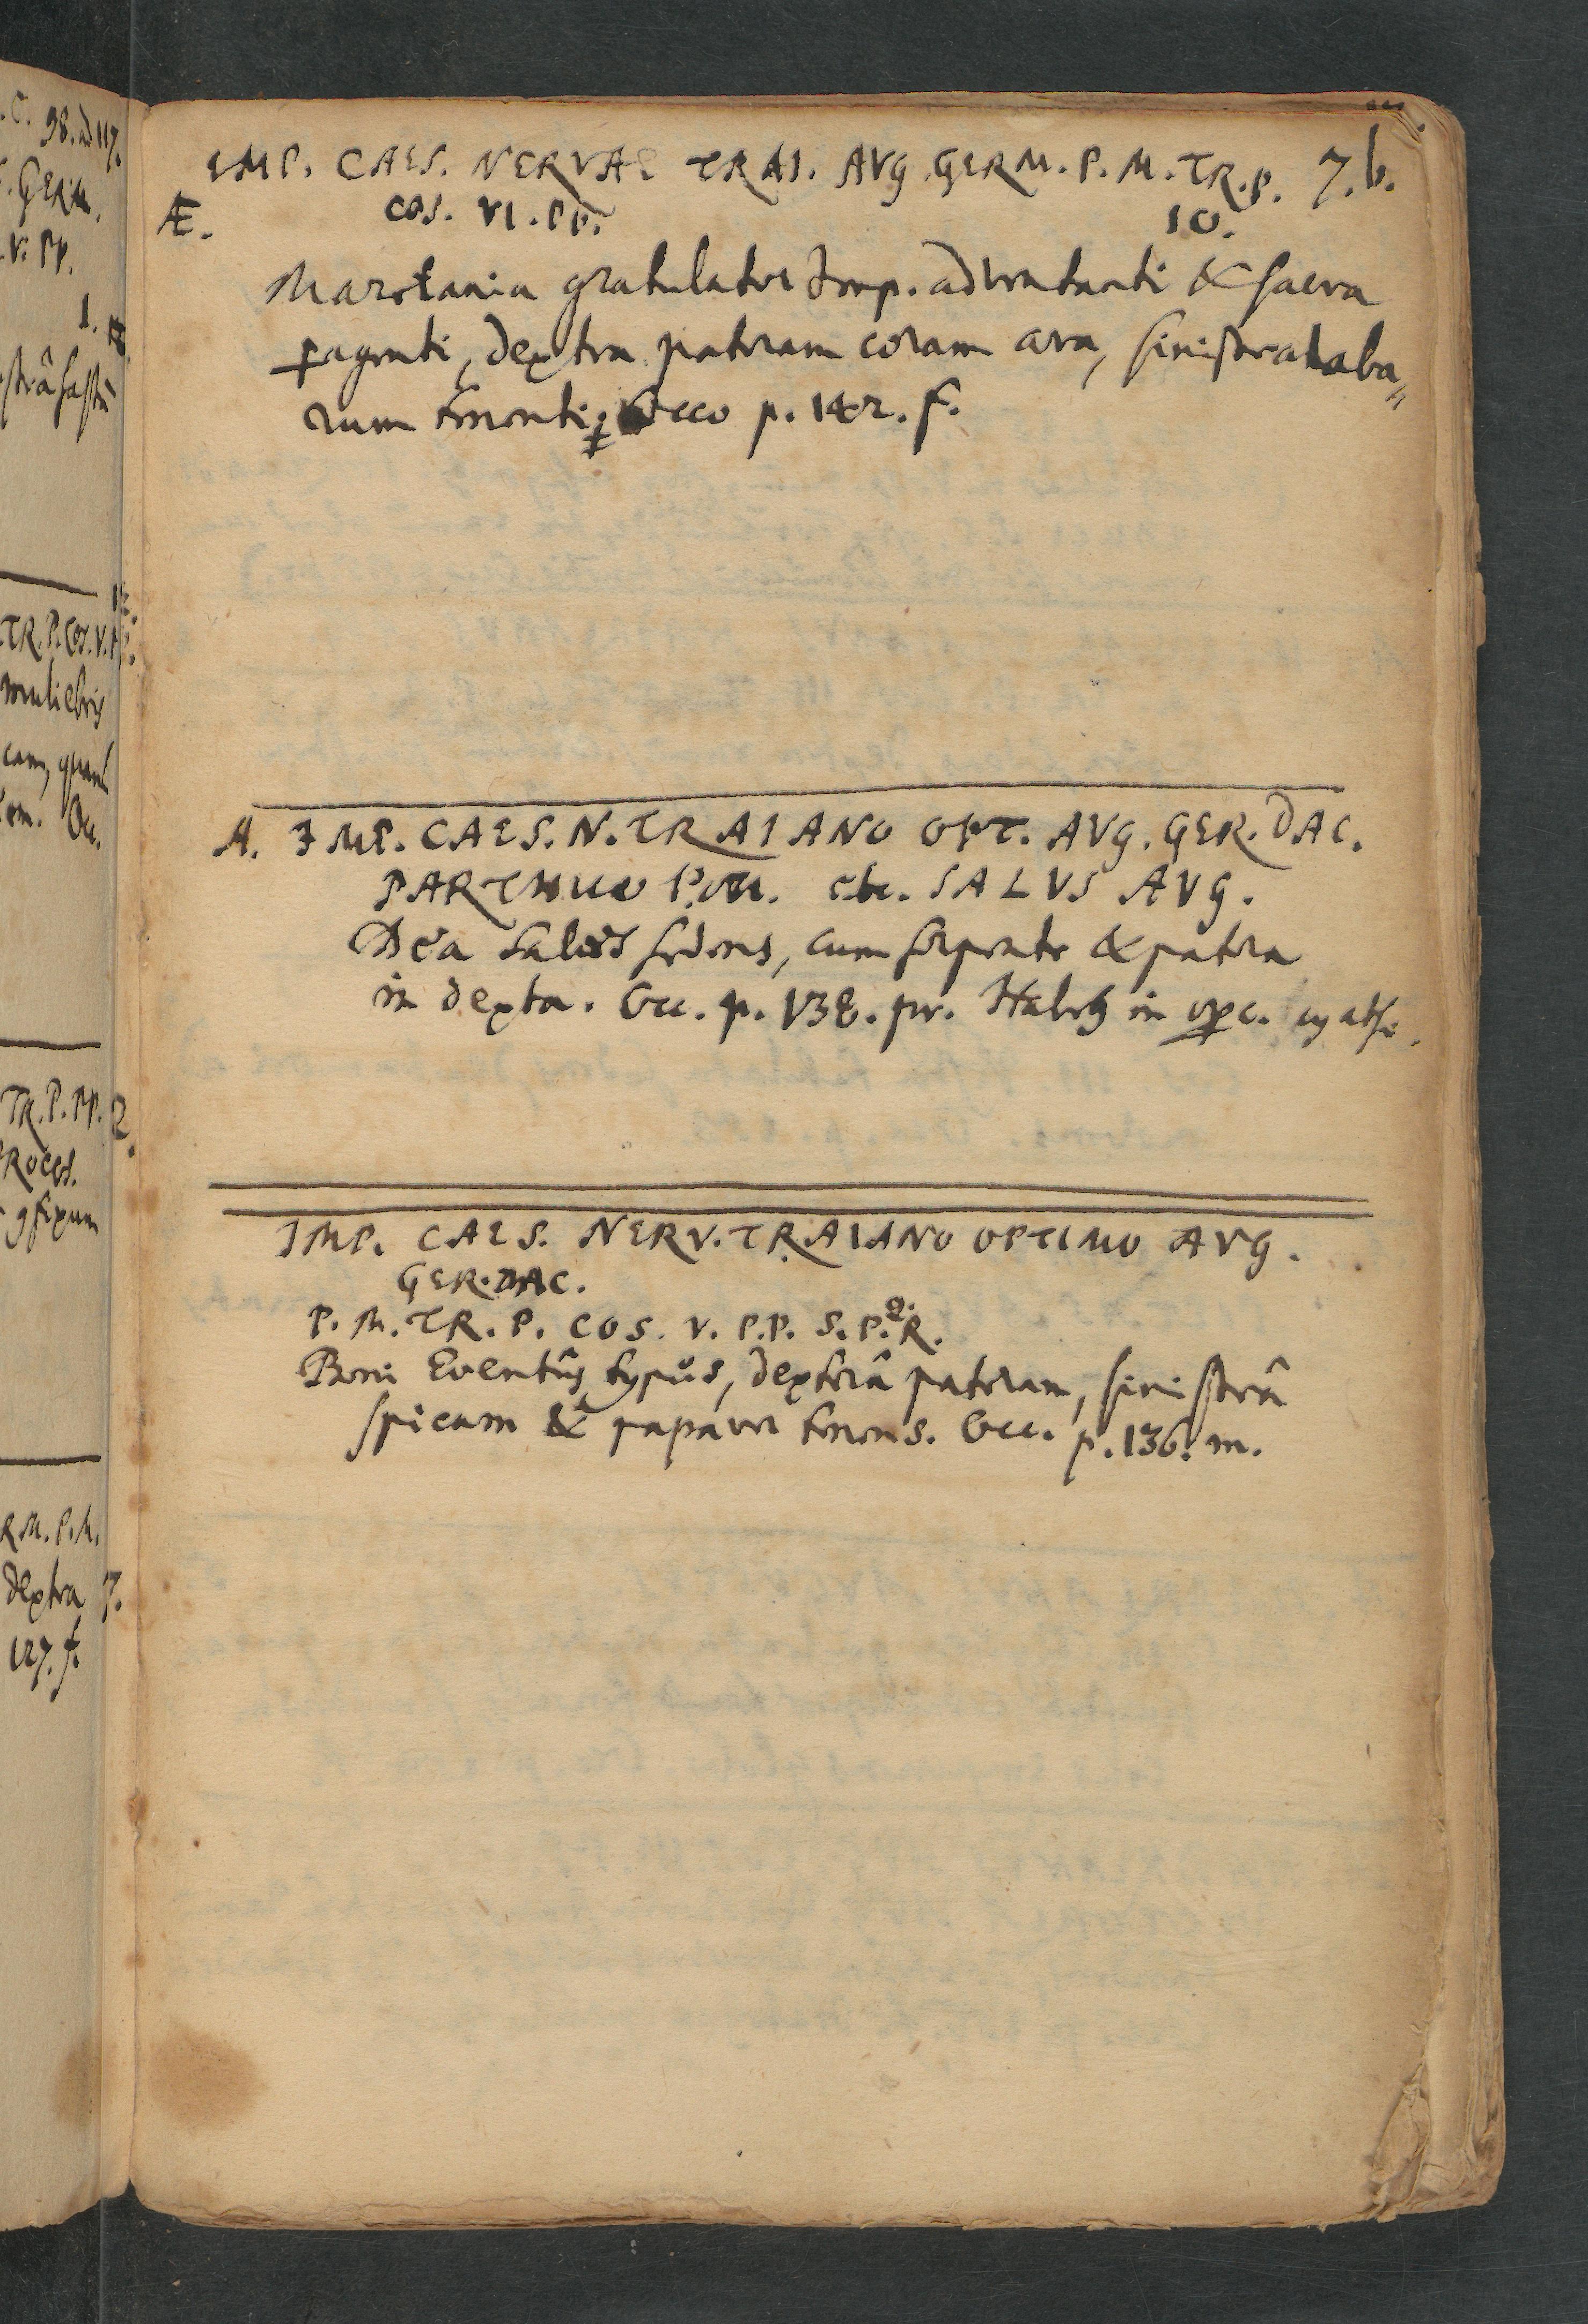 IMP. CAES. NERVAE TRAI. AVG GERM. P. M. TR. P. 7. b.
Æ. COS. VI. PP. 10.
Maretania gratulatur Imp. adventanti & sacra
peragenti, dextra pateram coram ara, sinistra laba„
rum tenenti; Occo p. 142. f.
A. IMP. CAES. N. TRAIANO OPT. AVG. GER. DAC.
PARTHICO P. M. etc. SALVS AVG.
Dea Salus sedens, cum serpente & patera
in dextra. Occ. p. 138. pr. in
IMP. CAES. NERV. TRAIANO OPTIMO AVG.
GER. DAC.
P. M. TR. P. COS. V. P.P. S. P. Q. R.
Boni Eventûs typus, dexterâ pateram, sinistrâ
spicam & papaver tenens. Occ. p. 136. m.
.C. 98. ad 117.
GERM.
V. PP.
1. Æ
TR. P. COS. V. P
muliebris
cam, quam
Occ.
TR. P. PP. 2.
RM. P. M.
dextra 7.
127. f.